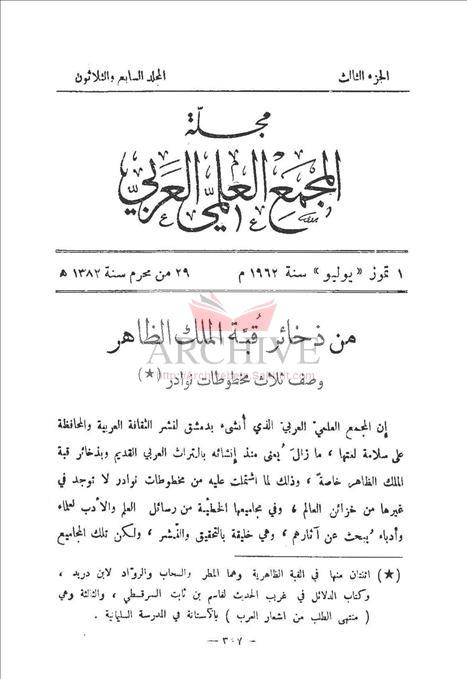 الجزء الثالث
المجلد السابع والثلاثون
مجلة
المجمع العلمي العربي
١ تموز « يوليو » سنة ١٩٦٢ م
٢٩ من محرم سنة ١٣٨٢ ه
من ذخائر قبة الملك الظاهر
ARCHIVE
وصف ثلاث مخطوطات نوادر (★)
إن المجمع العلمي العربي الذي أنشىء بدمشق لنشر الثقافة العربية والمحافظة
على سلامة لغتها ، ما زال يُعنى منذ إنشائه بالتراث العربي القديم وبذخائر قبة
الملك الظاهر خاصة ، وذلك لما اشتملت عليه من مخطوطات نوادر لا توجد في
غيرها من خزائن العالم ، وفي مجاميعها الخطيّة من رسائل العلم والأدب لعلماء
وأدباء يُبحث عن آثارهم ، وهي خليقة بالتحقيق والنّشر ، ولكن تلك المجاميع
(★) اثنتان منها في القبة الظاهرية وهما المطر والسحاب والروّاد لابن دريد ،
وكتاب الدلائل في غريب الحديث لقاسم بن ثابت السرقسطي ، والثالثة وهي
( منتهى الطلب من اشعار العرب ) بالآستانة في المدرسة السليمانية .
– ٣٠٧ –